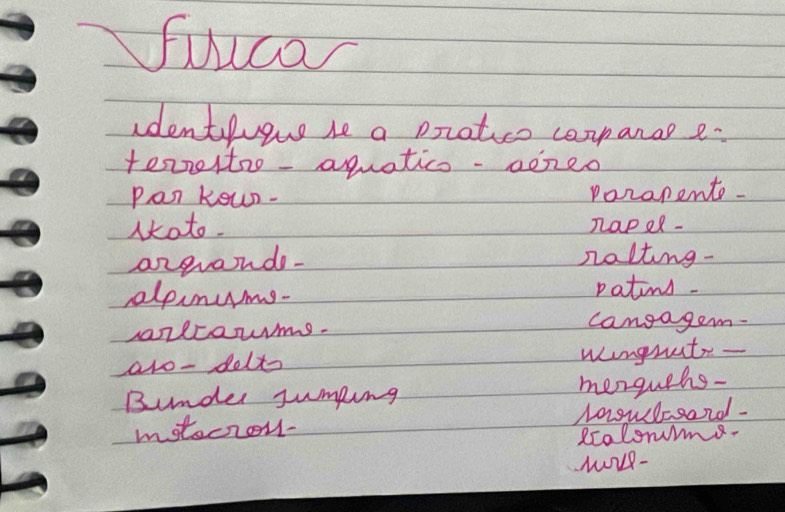 física
identifique se a pratica corparal e:
terrestre - aquatico - aéreo
Par kour-
skate-
arquande-
alpinismo-
aso-delta
Bundee jumping
motocross-
Parapente-
rapel-
ralting-
patins-
canoagem-
wingsuit-
mergulho-
escalonismo-
surf-